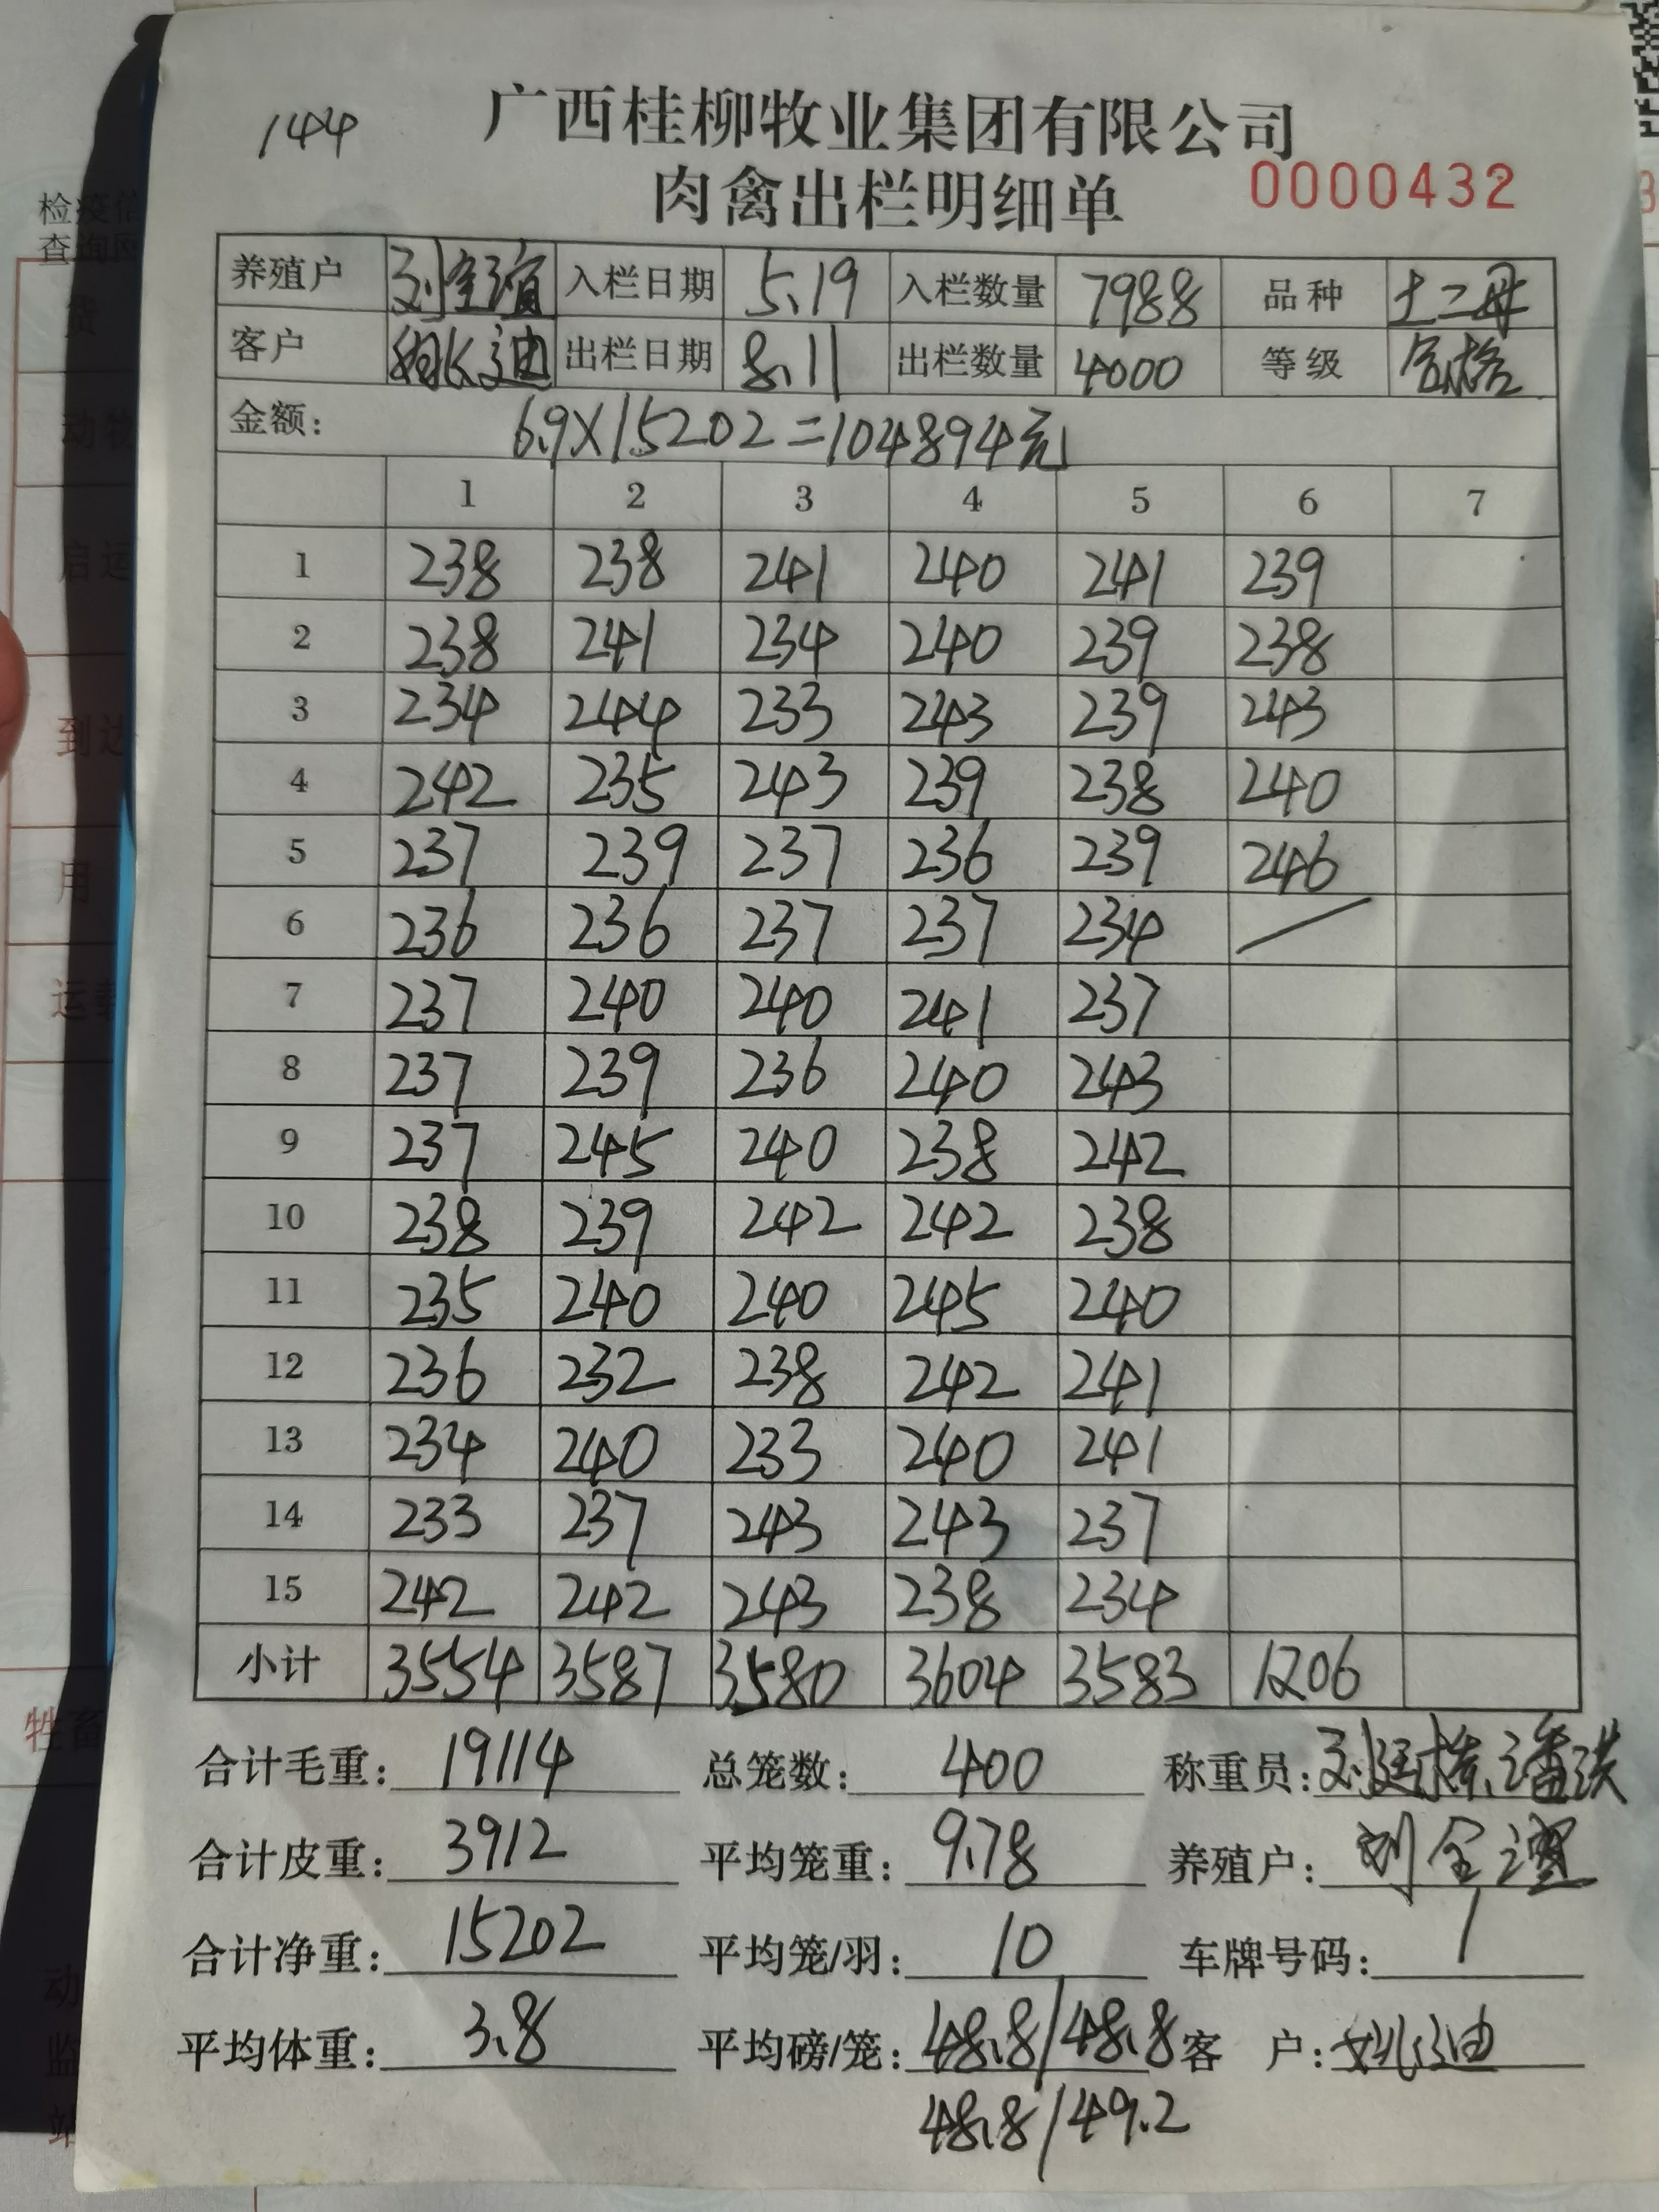 144
广西桂柳牧业集团有限公司
肉禽出栏明细单
0000432
养殖户 刘 入栏日期 5.19 入栏数量 7988 品种 土二母
客户 出栏日期 8.11 出栏数量 4000 等级 合格
金额: 6.9×15202=104894元
1 2 3 4 5 6 7
1 238 238 241 240 241 239
2 238 241 234 240 239 238
3 234 244 233 243 239 243
4 242 235 243 239 238 240
5 237 239 237 236 239 246
6 236 236 237 237 234 /
7 237 240 240 241 237
8 237 239 236 240 243
9 237 245 240 238 242
10 238 239 242 242 238
11 235 240 240 245 240
12 236 232 238 242 241
13 234 240 233 240 241
14 233 237 243 243 237
15 242 242 243 238 234
小计 3554 3587 3580 3604 3583 1206
合计毛重: 19114 总笼数: 400 称重员: 刘廷栋、潘洪
合计皮重: 3912 平均笼重: 9.78 养殖户: 刘
合计净重: 15202 平均笼/羽: 10 车牌号码: /
平均体重: 3.8 平均磅/笼: 48.8/48.8 客 户:
48.8/49.2
检疫信
查询网
货
动物
启运
到达
用
运载
牲畜
动
监
站